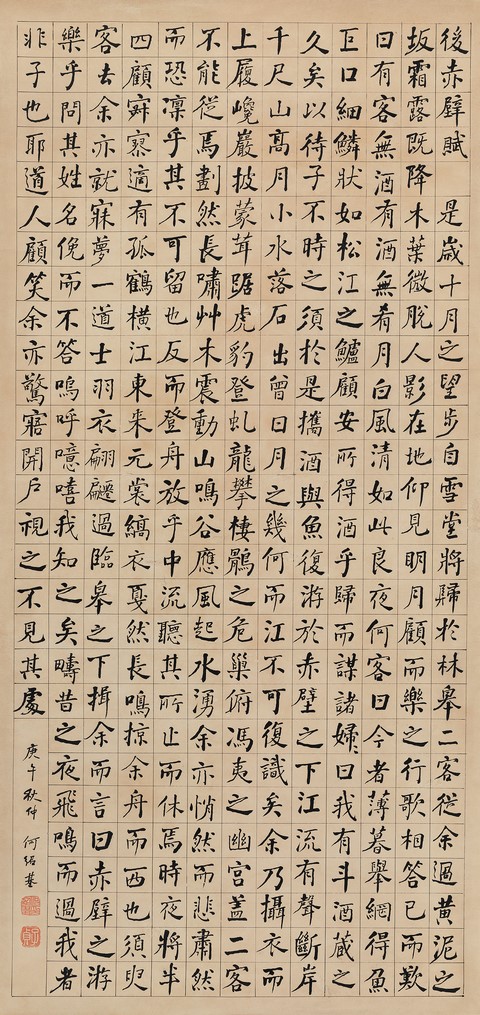 後赤壁賦　是歲十月之望步自雪堂將歸於林皋二客從余過黃泥之
坂霜露既降木葉微脫人影在地仰見明月顧而樂之行歌相答已而歎
曰有客無酒有酒無肴月白風清如此良夜何客曰今者薄暮舉網得魚
巨口細鱗狀如松江之鱸顧安所得酒乎歸而謀諸婦曰我有斗酒藏之
久矣以待子不時之須於是攜酒與魚復游於赤壁之下江流有聲斷岸
千尺山高月小水落石出曾日月之幾何而江不可復識矣余乃攝衣而
上履巉巖披蒙茸踞虎豹登虬龍攀棲鶻之危巢俯馮夷之幽宮蓋二客
不能從焉劃然長嘯艸木震動山鳴谷應風起水湧余亦悄然而悲肅然
而恐凜乎其不可留也反而登舟放乎中流聽其所止而休焉時夜將半
四顧寂寥適有孤鶴橫江東來元裳縞衣戛然長鳴掠余舟而西也須臾
客去余亦就寐夢一道士羽衣翩躚過臨皋之下揖余而言曰赤壁之游
樂乎問其姓名俛而不答嗚呼噫嘻我知之矣疇昔之夜飛鳴而過我者
非子也耶道人顧笑余亦驚寤開戶視之不見其處
庚午秋仲 何紹基